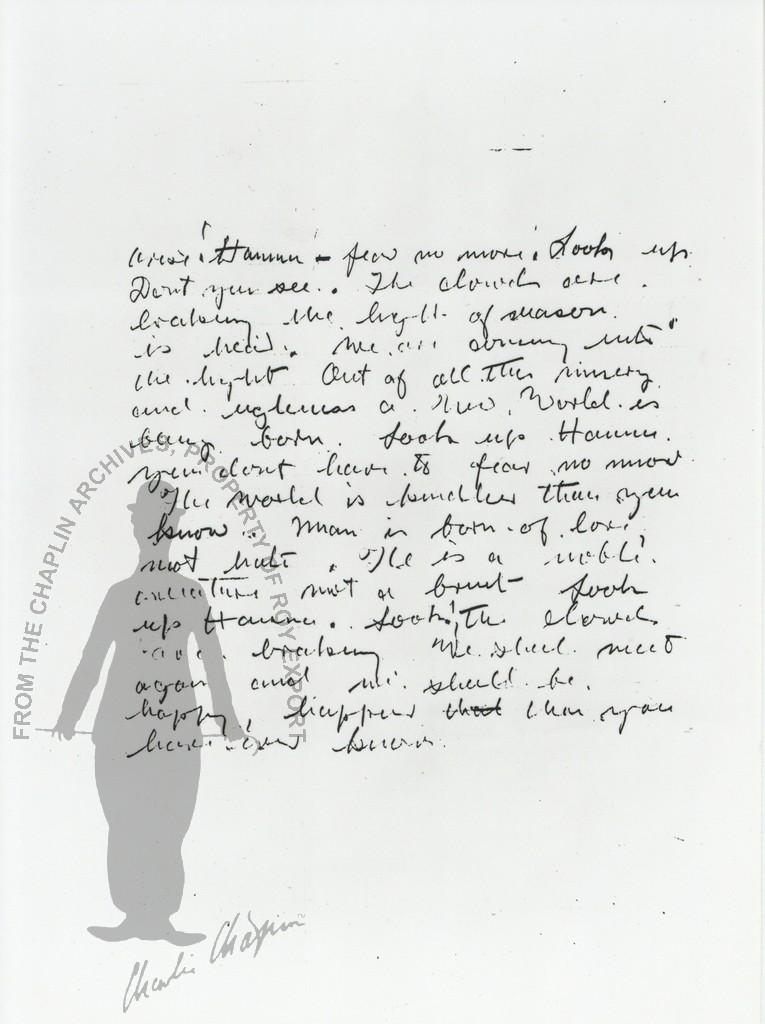 Hannah - fear no more. Look up
Dont you see. The clouds are.
breaking the light of reason.
is hear. We are coming into
the light Out of all this misery
and uglyness a New World is
being born. Look up Hannah.
you dont have to fear no more
The world is kindlier than you
know. Man is born of love
not hate. He is a noble
creature not a brute Look
up Hannah. Look! The clouds
are breaking We shall meet
again and we shall be.
happy, happier that than you
have ever known.
FROM THE CHAPLIN ARCHIVES, PROPERTY OF ROY EXPORT
Charlie Chaplin